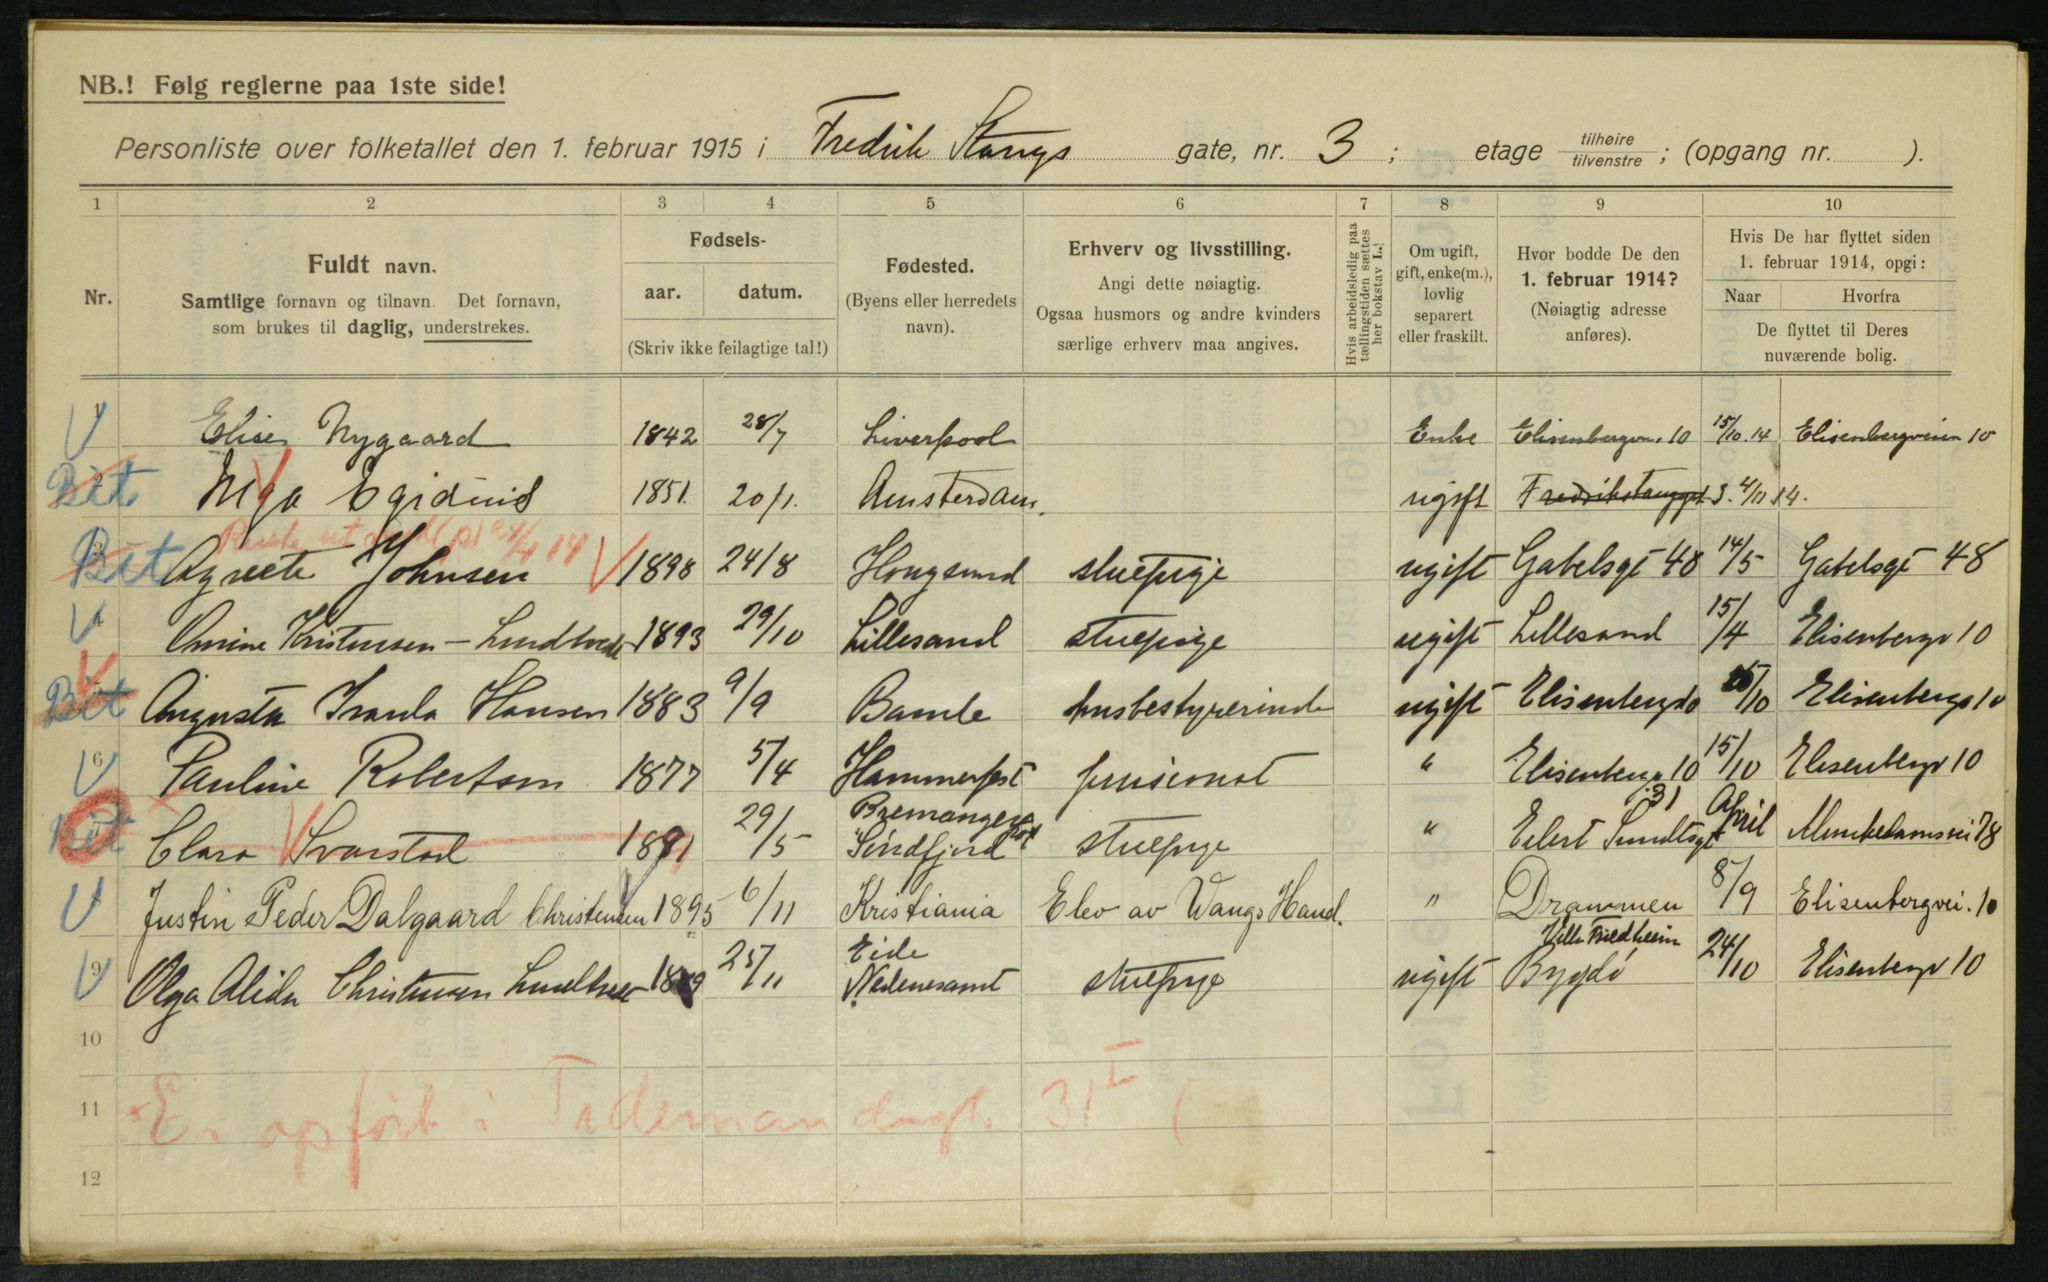 NB.! Følg reglerne paa 1ste side!
Personliste over folketallet den 1. februar 1915 i Fredrik Stangs gate, nr. 3; etage tilhøire/tilvenstre; (opgang nr. ).
1 2 3 4 5 6 7 8 9 10
Nr.
Fuldt navn.
Samtlige fornavn og tilnavn. Det fornavn,
som brukes til daglig, understrekes.
Fødsels-
aar. datum.
(Skriv ikke feilagtige tal!)
Fødested.
(Byens eller herredets
navn).
Erhverv og livsstilling.
Angi dette nøiagtig.
Ogsaa husmors og andre kvinders
særlige erhverv maa angives.
Hvis arbeidsledig paa
tællingstiden sættes
her bokstav L.!
Om ugift,
gift, enke(m.),
lovlig
separert
eller fraskilt.
Hvor bodde De den
1. februar 1914?
(Nøiagtig adresse
anføres).
Hvis De har flyttet siden
1. februar 1914, opgi:
Naar Hvorfra
De flyttet til Deres
nuværende bolig.
Elise Nygaard 1842 28/7 Liverpool Enke Elisenbergvn. 10 15/10.14 Elisenbergveien 10
Bit Egidius 1851. 20/1. Amsterdam. ugift Fredrikstangsgt 3. 4/11 14.
Bit Agnete Johnsen 1898 24/8 Hougsund stuepige ugift Gabelsgt 48 14/5 Gabelsgt 48
4 Kristensen - 1893 29/10 Lillesand stuepige ugift Lillesand 15/4 Elisenbergv 10
Bit Augusta Hansen 1883 9/9 Bamle husbestyrerinde ugift /10 Elisenbergv 10
6 Pauline Robertson 1877 5/4 Hammerfest pensionat " Elisenbergv 10 15/10 Elisenbergv 10
Bit Clara Svarstad 1891 29/5 Bremanger Söndfjord stuepige " Eilert Sundtsgt 31 April Munkedamsvei 78
Justin Peder Dalgaard Christensen 1895 6/11 Kristiania Elev av Wangs Hand. " Drammen 8/9 Elisenbergvei. 10
9 Olga Alida Christensen 25/11 Eide Nedenesamt stuepige ugift Bygdö 24/10 Elisenbergv 10
10
11 Er opført i Tidemandsgt. 31 I
12